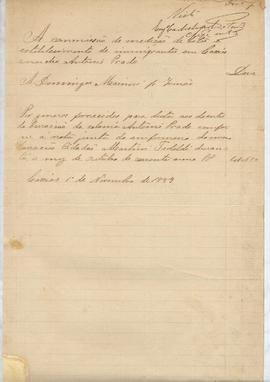 Visto
A commissão de medição de lotes e
estabelecimento de immigrantes em Caxias
Antonio Prado
A Domingos Marino & Irmão Deve
Por generos fornecidos para dieta aos doentes
da enfermaria da colonia Antonio Prado confor
me a nota junta do enfermeiro da mes
Cidadão Martim Tedoldi duran
te o mez de Outubro do corrente anno
Caxias 1º de Novembro de 1889